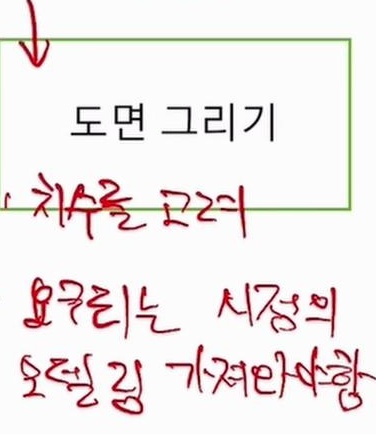 도면 그리기
치수를 고려
요구되는 시점의
모델링 가져와야함